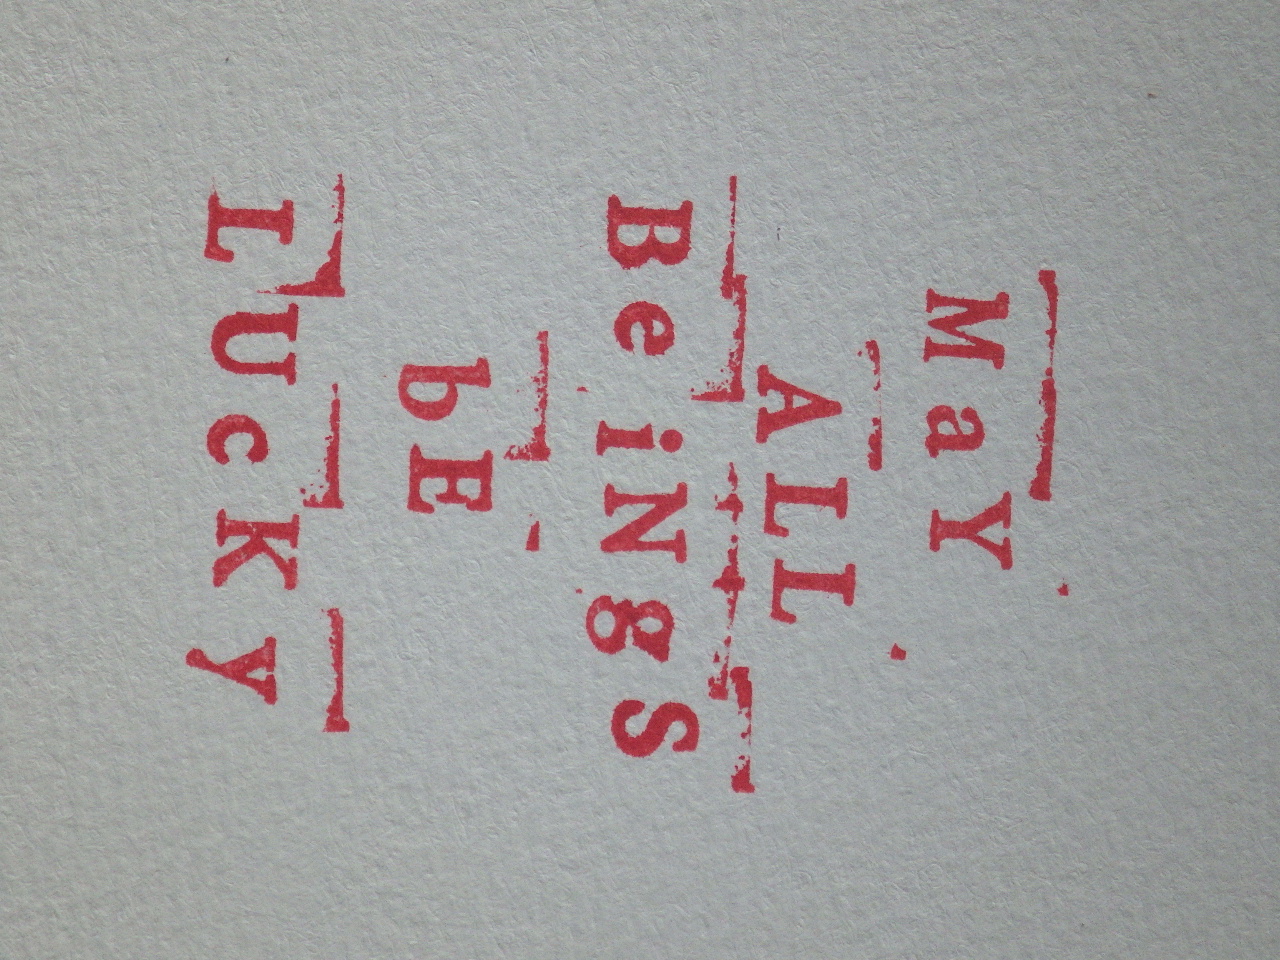 MaY
ALL
BeiNgS
bE
LUcKy